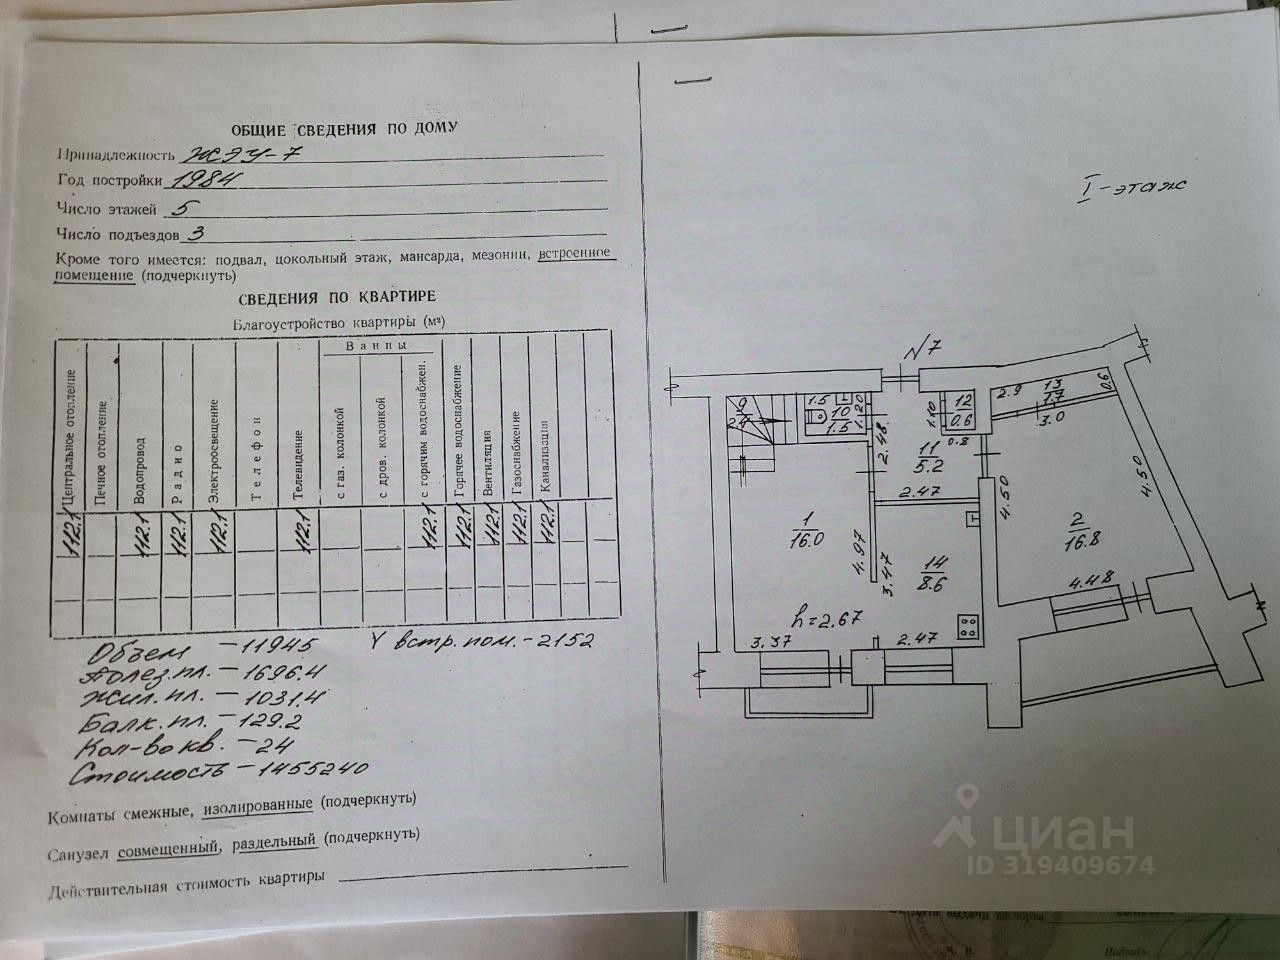 ОБЩИЕ СВЕДЕНИЯ ПО ДОМУ
Принадлежность ЖЭУ-7
Год постройки 1984
Число этажей 5
Число подъездов 3
Кроме того имеется: подвал, цокольный этаж, мансарда, мезонин, встроенное
помещение (подчеркнуть)
СВЕДЕНИЯ ПО КВАРТИРЕ
Благоустройство квартиры (м²)
Центральное отопление
Печное отопление
Водопровод
Радио
Электроосвещение
Телефон
Телевидение
Ванны
с газ. колонкой
с дров. колонкой
с горячим водоснабжен.
Горячее водоснабжение
Вентиляция
Газоснабжение
Канализация
112.1 112.1 112.1 112.1 112.1 112.1 112.1 112.1 112.1 112.1
Объем - 11945 V встр. пом. - 2152
Полез. пл. - 1696.4
Жил. пл. - 1031.4
Балк. пл. - 129.2
Кол-во кв. - 24
Стоимость - 1455240
Комнаты смежные, изолированные (подчеркнуть)
Санузел совмещенный, раздельный (подчеркнуть)
Действительная стоимость квартиры
I-этаж
№7
9
2.4
1.5
10
1.5
1.20
2.48
1.10
12
0.6
0.8
2.9
13
1.7
0.6
3.0
11
5.2
2.47
4.50
4.50
1
16.0
4.97
3.47
14
8.6
2
16.8
4.48
h=2.67
3.37
2.47
циан
ID 319409674
дата выдачи паспорта
м. п.
Подпись